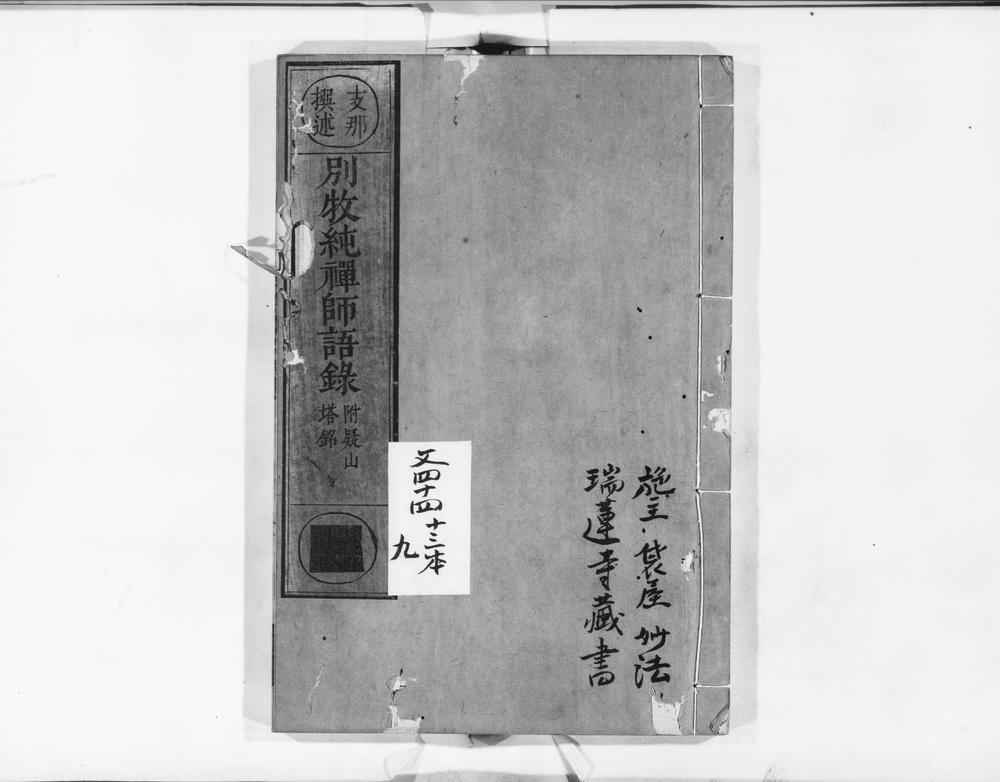 施主袋屋妙法
瑞蓮寺藏書
支那
撰述
別牧純禪師語錄
附疑山
塔銘
文四十四
十三本
九